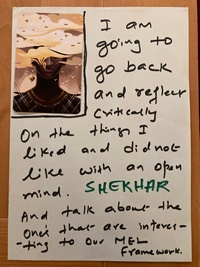 I am
going to
go back
and reflect
critically
on the things I
liked and did not
like with an open
mind. SHEKHAR
And talk about the
ones that are interes-
-ting to our MEL
Framework.